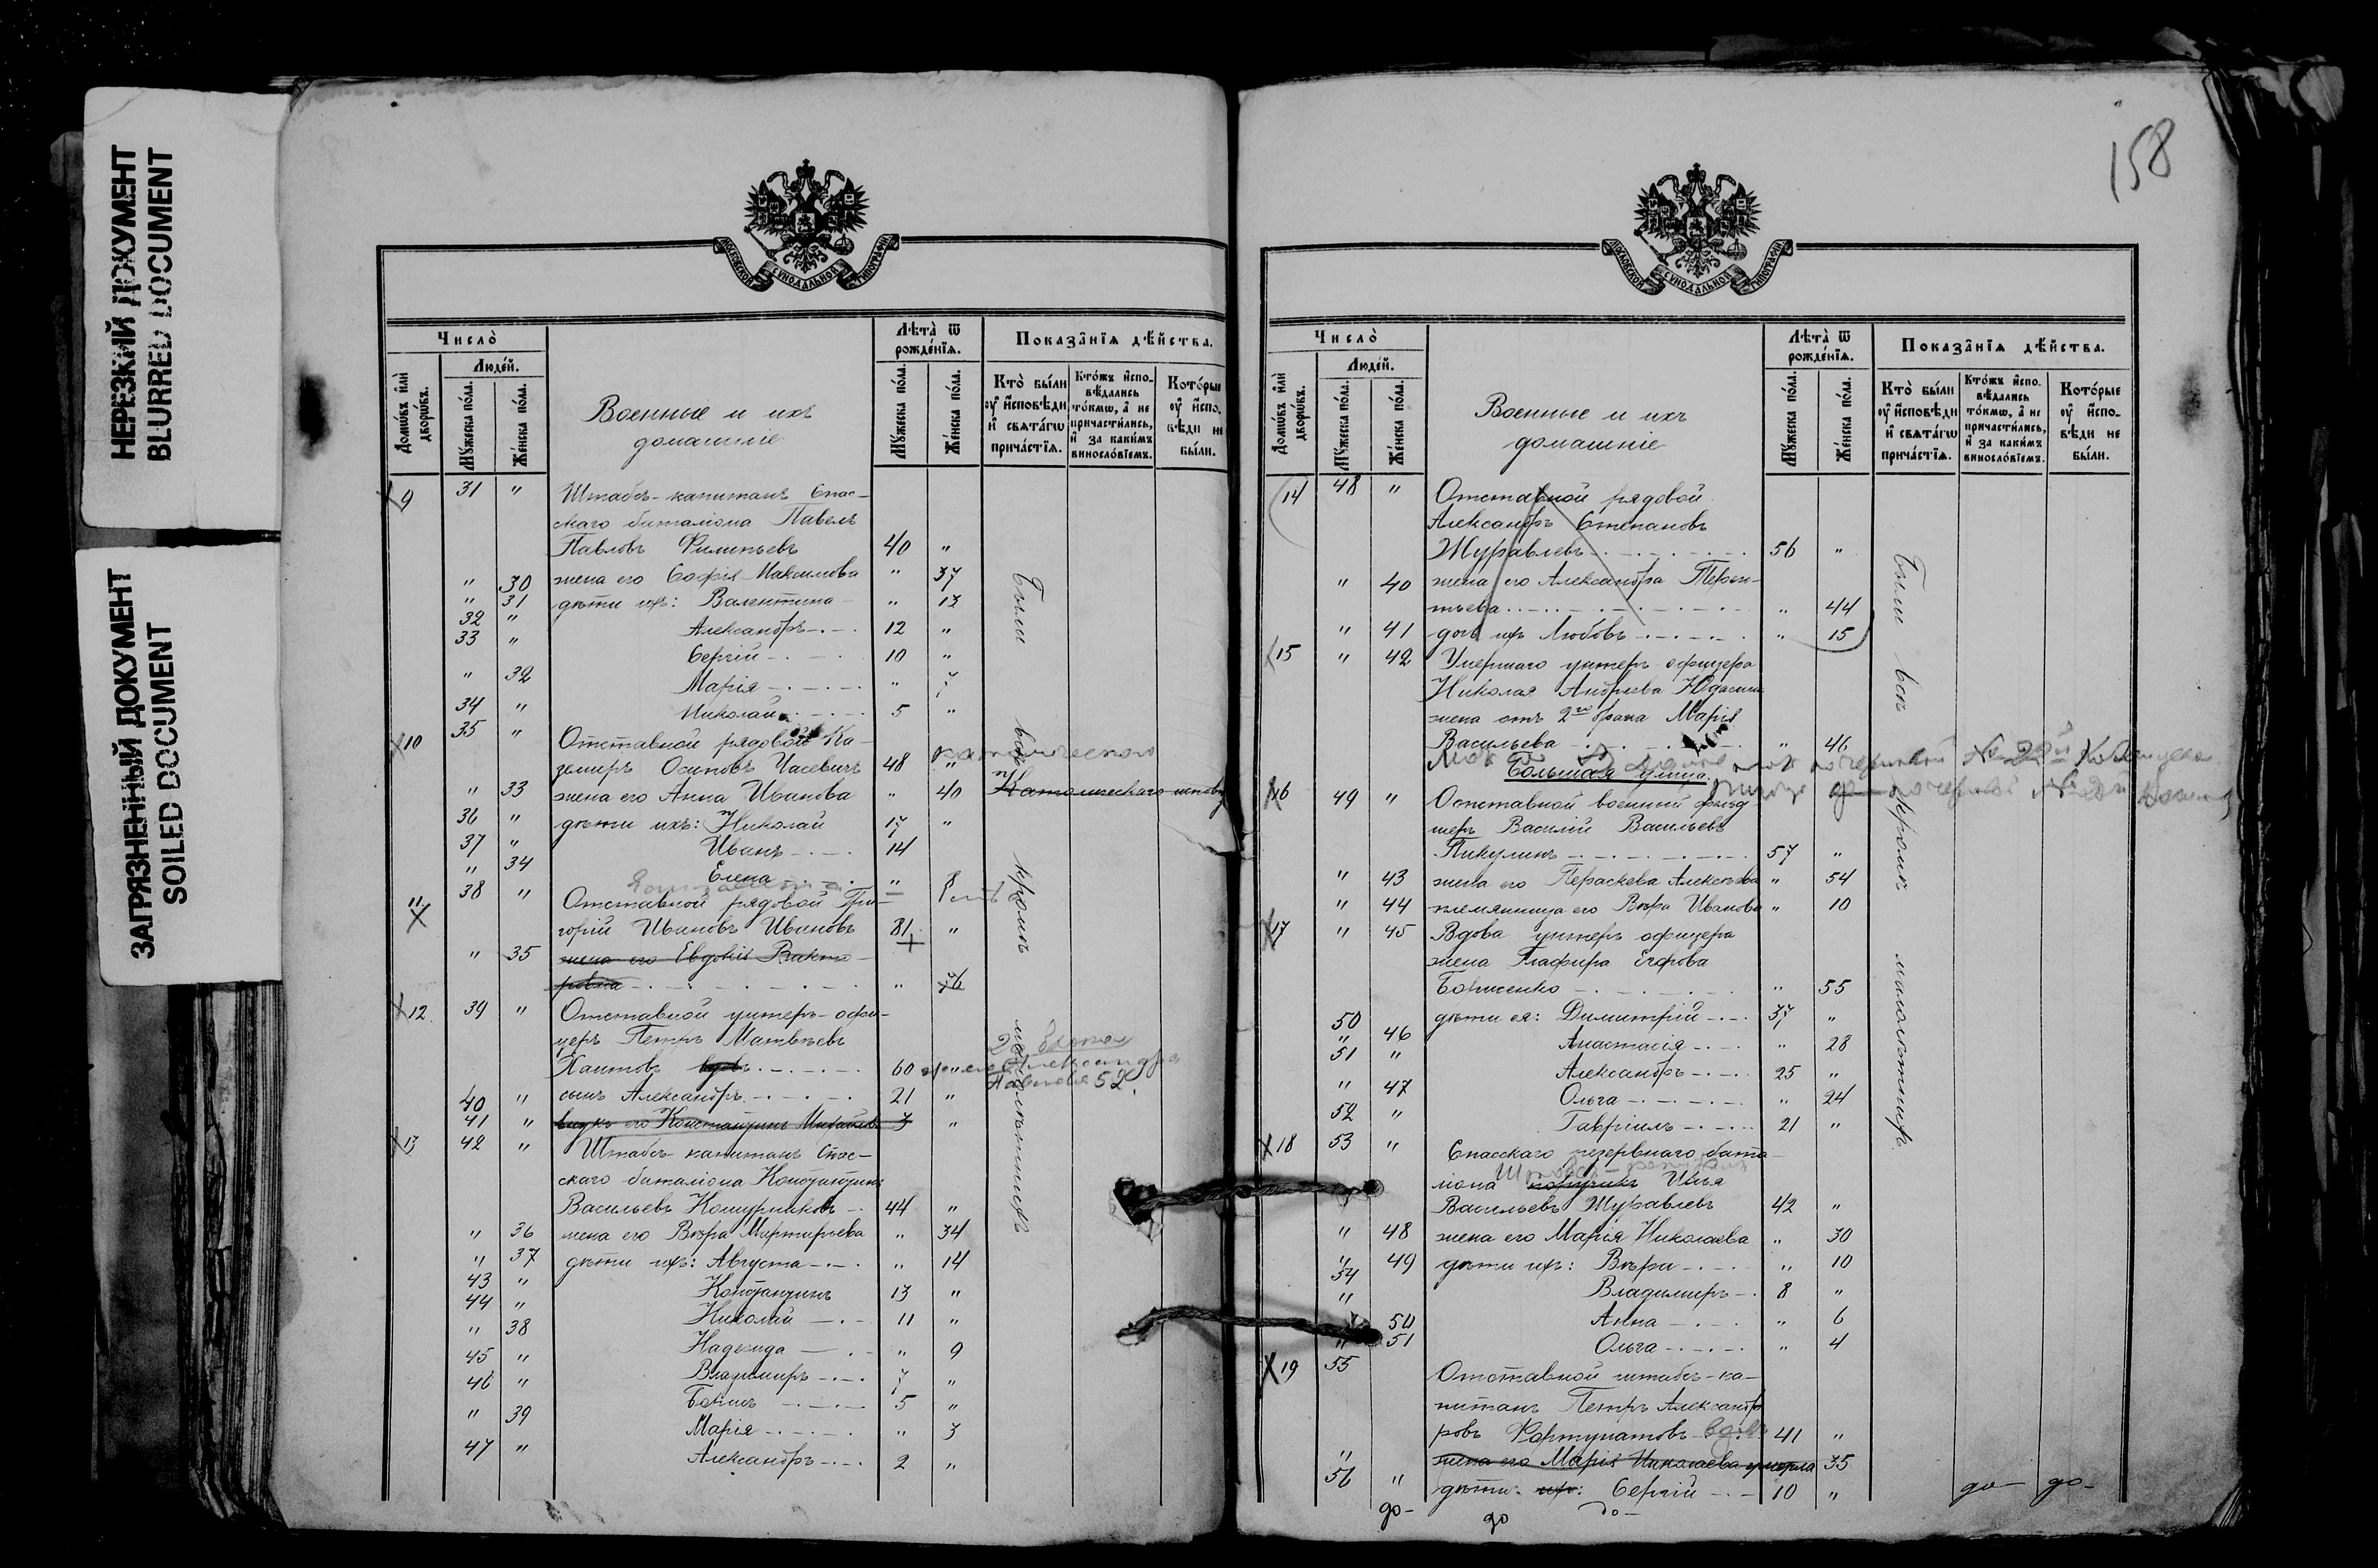 НЕРЕЗКИЙ ДОКУМЕНТ
BLURRED DOCUMENT
ЗАГРЯЗНЕННЫЙ ДОКУМЕНТ
SOILED DOCUMENT
МОСКОВСКОЙ СѴНОДАЛЬНОЙ ТИПОГРАФІИ
Число̀
Домѡ́въ и҆лѝ дворѡ́въ.
Люде́й.
Мꙋ́жеска по́ла.
Же́нска по́ла.
Военные и ихъ
домашніе
Лѣ́та ѿ рожде́нїѧ.
Мꙋ́жеска по́ла.
Же́нска по́ла.
Показа̑нїѧ дѣ́йства.
Кто̀ бы́ли оу҆ и҆сповѣ́ди и҆ свѧта́гѡ прича́стїѧ.
Кто́жъ и҆сповѣ́дались то́кмѡ, а҆ не причасти́лись, и҆ за каки́мъ винослѡ́вїемъ.
Кото́рые оу҆ и҆сповѣ́ди не бы́ли.
9 31 " Штабсъ-капитанъ Спас-
скаго баталіона Павелъ
Павловъ Филипьевъ 40 "
" 30 жена его Софія Максимова " 37
" 31 дѣти ихъ: Валентина " 13
32 " Александръ 12 "
33 " Сергій 10 "
" 32 Марія " 7
34 " Николай 5 "
10 35 " Отставной рядовой Ка-
земиръ Осиповъ Часевичъ 48 " католическаго
" 33 жена его Анна Иванова " 40 Католическаго исповѣд
36 " дѣти ихъ: Николай 17 "
37 " Иванъ 14
" 34 Елена " 8
11 38 " Отставной рядовой Гри-
горій Ивановъ Ивановъ 81 "
" 35 жена его Евдокія
"
12 39 " Отставной унтеръ-офи-
церъ Петръ Матвѣевъ
вдовъ 60 " жена Александра
Павлова 52
40 " сынъ Александръ 21 "
41 " внукъ его Константинъ 3 "
13 42 " Штабсъ-капитанъ Спас-
скаго баталіона Константинъ
Васильевъ Кошурниковъ 44 "
" 36 жена его Вѣра Мартирьева " 34
" 37 дѣти ихъ: Августа " 14
43 " Константинъ 13 "
44 " Николай 11 "
" 38 Надежда " 9
45 " Владимиръ 7 "
46 " Борисъ 5 "
" 39 Марія " 3
47 " Александръ 2 "
Были всѣ кромѣ малолѣтнихъ
158
МОСКОВСКОЙ СѴНОДАЛЬНОЙ ТИПОГРАФІИ
Число̀
Домѡ́въ и҆лѝ дворѡ́въ.
Люде́й.
Мꙋ́жеска по́ла.
Же́нска по́ла.
Военные и ихъ
домашніе
Лѣ́та ѿ рожде́нїѧ.
Мꙋ́жеска по́ла.
Же́нска по́ла.
Показа̑нїѧ дѣ́йства.
Кто̀ бы́ли оу҆ и҆сповѣ́ди и҆ свѧта́гѡ прича́стїѧ.
Кто́жъ и҆сповѣ́дались то́кмѡ, а҆ не причасти́лись, и҆ за каки́мъ винослѡ́вїемъ.
Кото́рые оу҆ и҆сповѣ́ди не бы́ли.
14 48 " Отставной рядовой
Александръ Степановъ
Журавлевъ 56 "
" 40 жена его Александра Терен-
тьева " 44
" 41 дочь ихъ Любовь " 15
15 " 42 Умершаго унтеръ-офицера
Николая Андреева
жена отъ 2го брака Марія
Васильева " 46
Большая улица
16 49 " Отставной военный фельд
шеръ Василій Васильевъ
Пикулинъ 57 "
" 43 жена его Параскева Алексѣева " 54
" 44 племянница его Вѣра Иванова " 10
17 " 45 Вдова унтеръ офицера
жена Глафира Егорова
Борисенко " 55
50 дѣти ея: Димитрій 37 "
" 46 Анастасія " 28
51 " Александръ 25 "
" 47 Ольга " 24
52 " Гавріилъ 21 "
18 53 " Спасскаго резервнаго бата-
Штабсъ-капитанъ
ліона поручикъ Илья
Васильевъ Журавлевъ 42 "
" 48 жена его Марія Николаева " 30
" 49 дѣти ихъ: Вѣра " 10
54 " Владимиръ 8 "
" 50 Анна " 6
" 51 Ольга " 4
19 55 Отставной штабсъ-ка-
питанъ Петръ Александ
ровъ Фортунатовъ вдовъ 41 "
" жена его Марія Николаева умерла 35
56 " дѣти ихъ: Сергій 10 "
Были всѣ кромѣ малолѣтнихъ
до- до до- до- до-